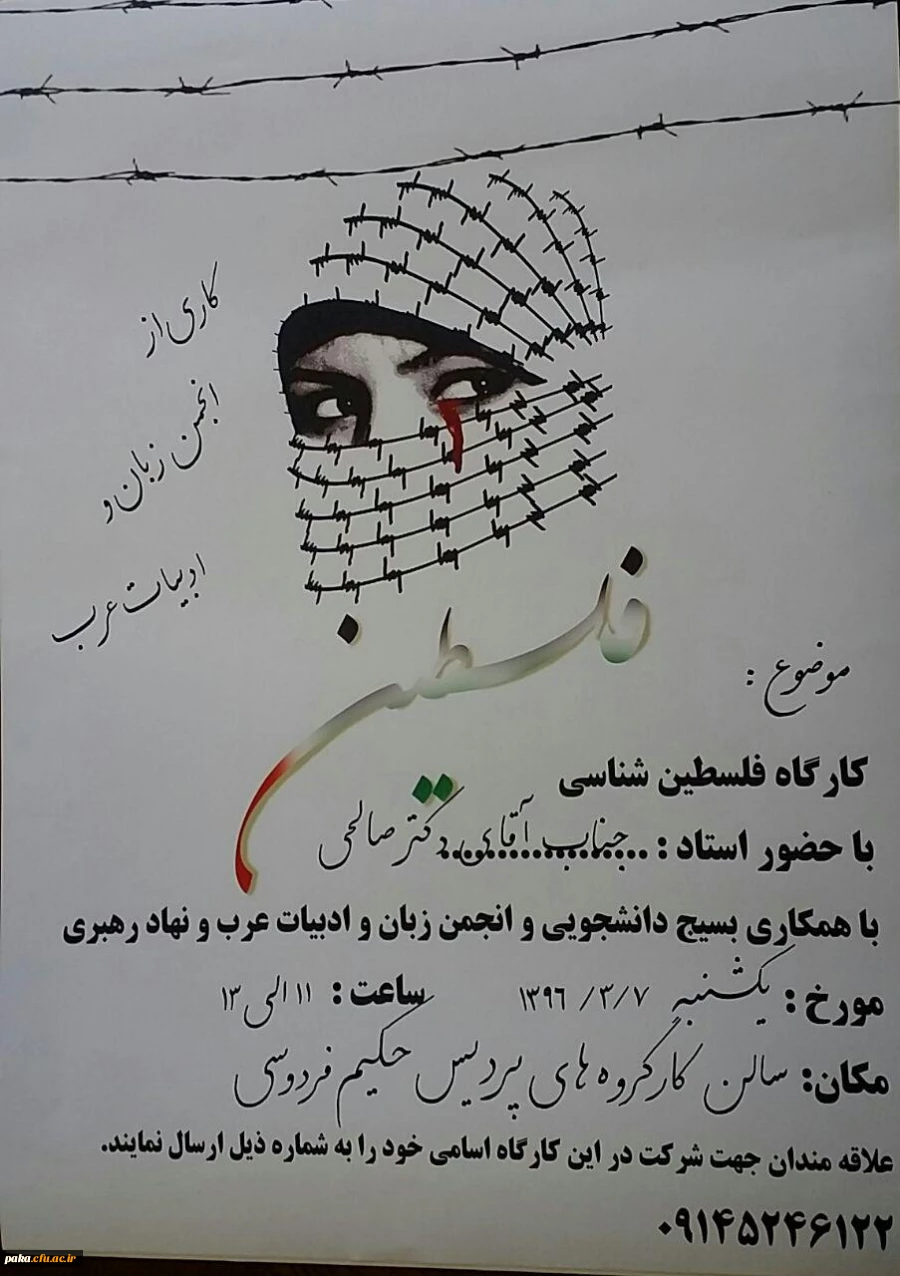 کاری از
انجمن زبان و
ادبیات عرب
فلسطین
موضوع :
کارگاه فلسطین شناسی
با حضور استاد : جناب آقای دکتر صالحی
با همکاری بسیج دانشجویی و انجمن زبان و ادبیات عرب و نهاد رهبری
مورخ : یکشنبه ۱۳۹۶ /۳/۷ ساعت : ۱۱ الی ۱۳
مکان: سالن کارگروه های پردیس حکیم فردوسی
علاقه مندان جهت شرکت در این کارگاه اسامی خود را به شماره ذیل ارسال نمایند.
۰۹۱۴۵۲۴۶۱۲۲
paka.cfu.ac.ir